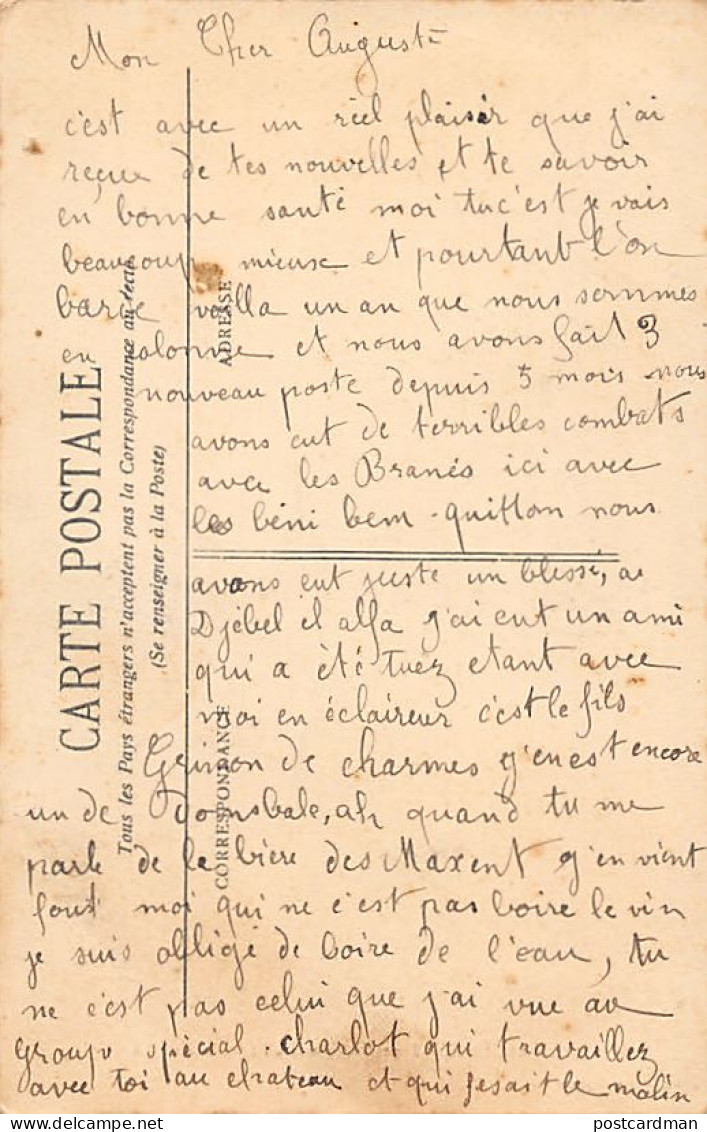 Mon Cher Auguste
c'est avec un réel plaisir que j'ai
reçue de tes nouvelles et te savoir
en bonne santé moi tu c'est je vais
beaucoup mieuse et pourtant l'on
barde voilla un an que nous sommes
en colonne et nous avons fait 3
nouveau poste depuis 5 mois nous
avons eut de terribles combats
avec les Branés ici avec
les béni bem-quillon nous
avons eut juste un blessé, a
Djébel el alfa j'ai eut un ami
qui a été tuez etant avec
moi en éclaireur c'est le fils
Grinon de charmes g'en est encore
un de Domsbale, ah quand tu me
parle de la bière des Maxent g'en vient
fout moi qui ne c'est pas boire le vin
je suis obligé de boire de l'eau, tu
ne c'est pas celui que j'ai vue au
groupe spécial. charlot qui travaillez
avec toi au chateau et qui fesait le malin
CARTE POSTALE
Tous les Pays étrangers n'acceptent pas la Correspondance au recto
(Se renseigner à la Poste)
CORRESPONDANCE
ADRESSE
postcardman